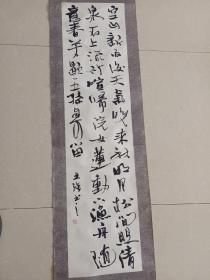 空山新雨後天氣晚来秋明月松间照清
泉石上流竹喧歸浣女蓮動下漁舟随
意春芳歇王孫自可留